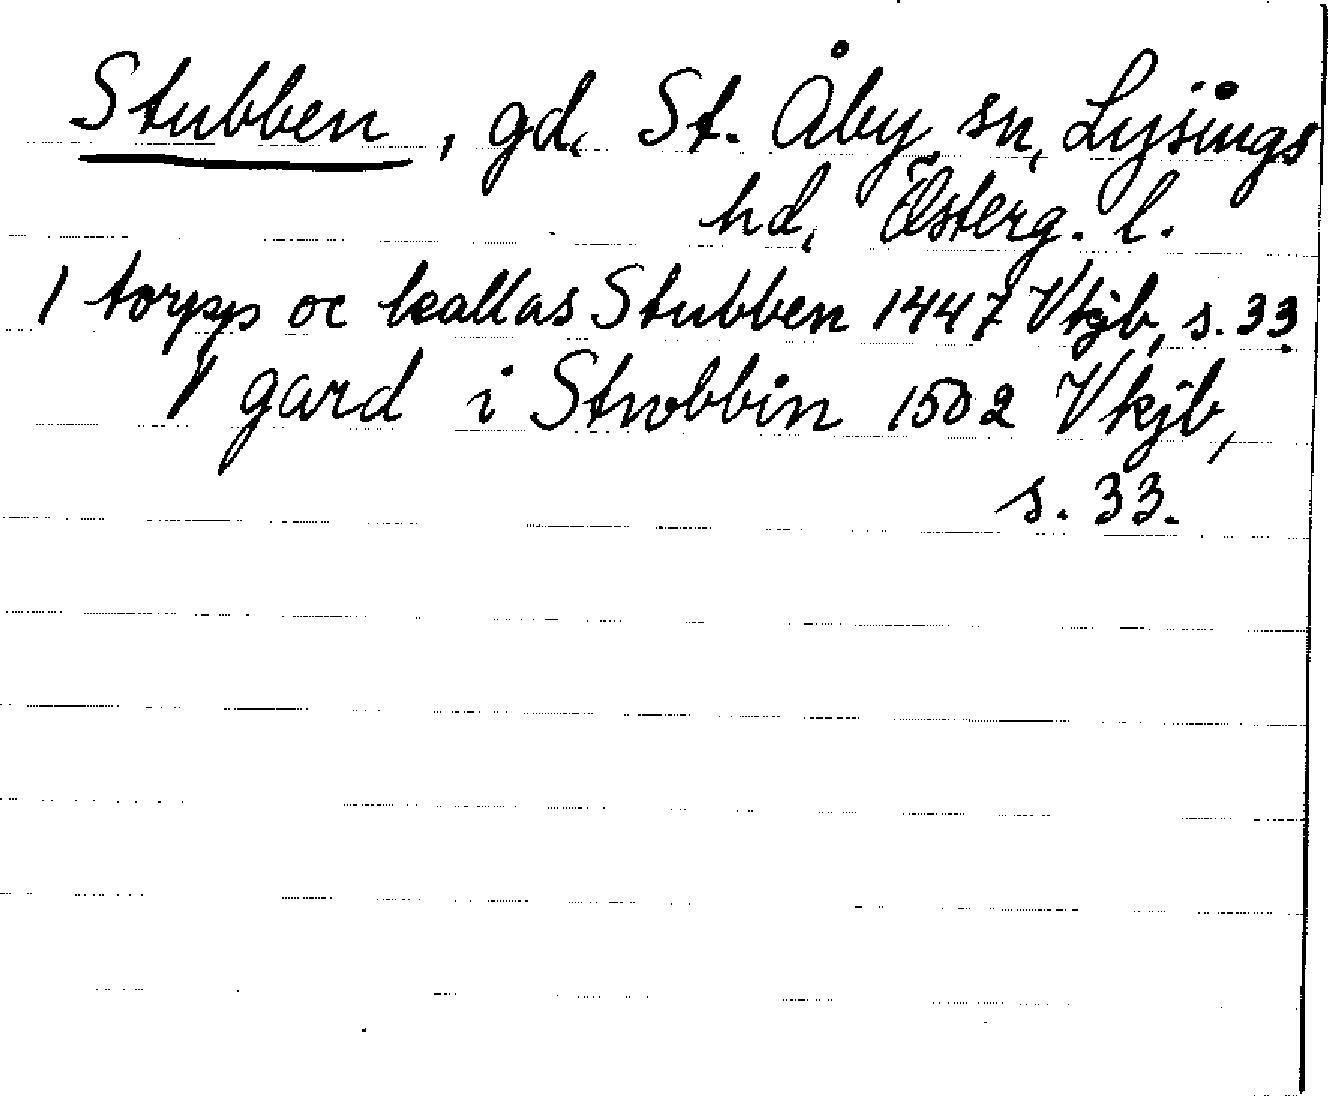 Stubben, gd, St. Åby sn, Lysings
hd, Österg. l.
1 torpp oc kallas Stubben 1447 Vkjb, s. 33
1 gard i Stwbbin 1502 Vkjb,
s. 33.